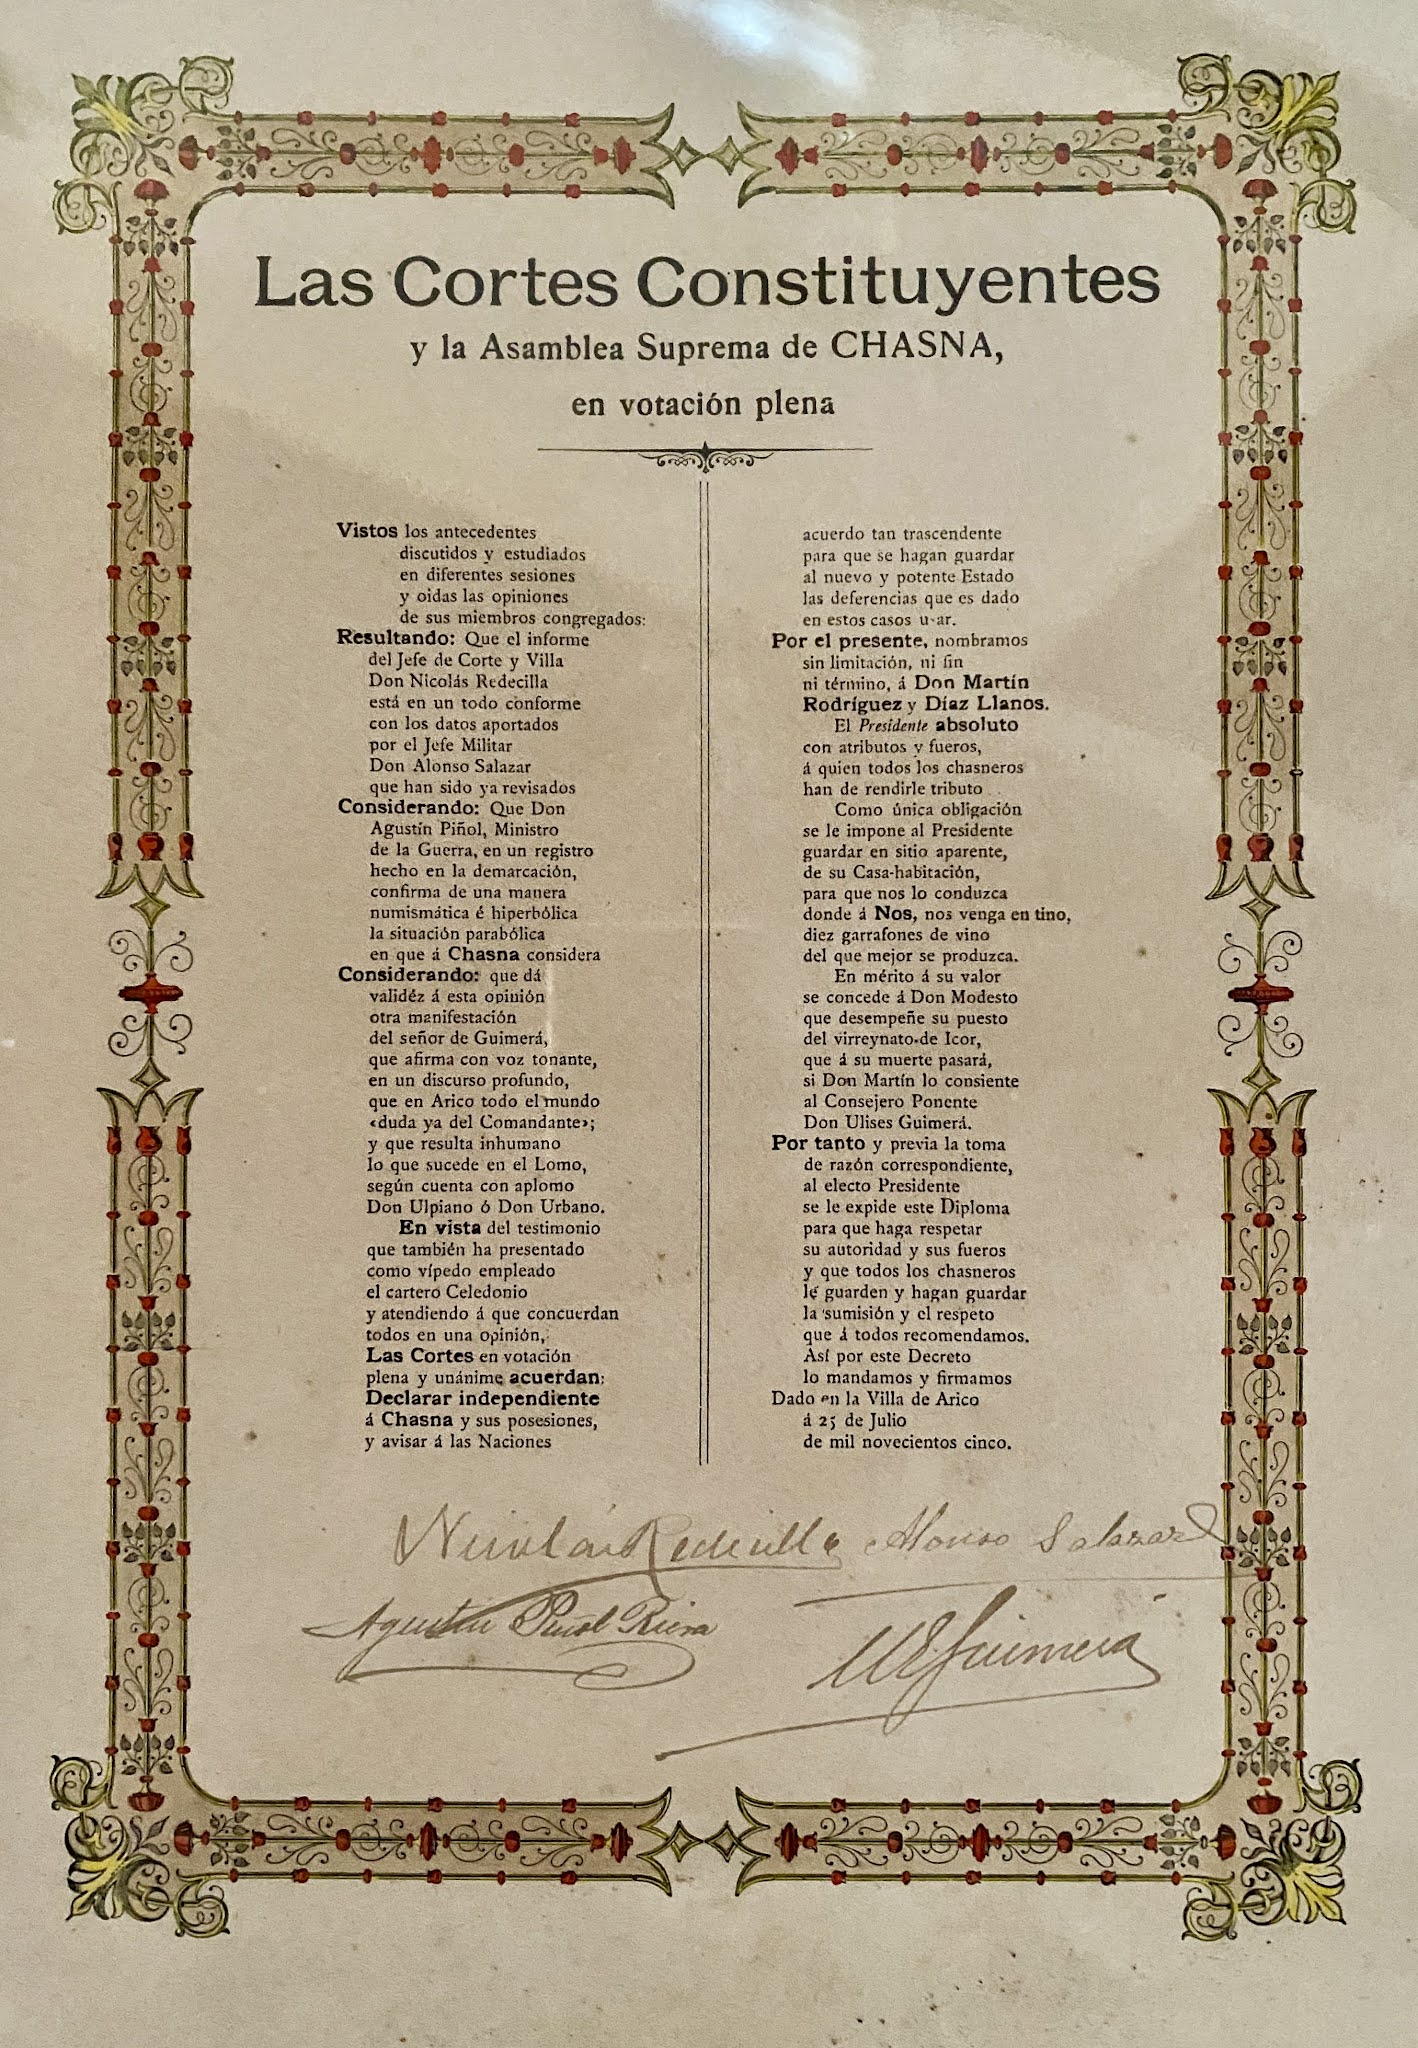 Las Cortes Constituyentes
y la Asamblea Suprema de CHASNA,
en votación plena
Vistos los antecedentes
discutidos y estudiados
en diferentes sesiones
y oidas las opiniones
de sus miembros congregados:
Resultando: Que el informe
del Jefe de Corte y Villa
Don Nicolás Redecilla
está en un todo conforme
con los datos aportados
por el Jefe Militar
Don Alonso Salazar
que han sido ya revisados
Considerando: Que Don
Agustín Piñol, Ministro
de la Guerra, en un registro
hecho en la demarcación,
confirma de una manera
numismática é hiperbólica
la situación parabólica
en que á Chasna considera
Considerando: que dá
validéz á esta opinión
otra manifestación
del señor de Guimerá,
que afirma con voz tonante,
en un discurso profundo,
que en Arico todo el mundo
«duda ya del Comandante»;
y que resulta inhumano
lo que sucede en el Lomo,
según cuenta con aplomo
Don Ulpiano ó Don Urbano.
En vista del testimonio
que también ha presentado
como vípedo empleado
el cartero Celedonio
y atendiendo á que concuerdan
todos en una opinión,
Las Cortes en votación
plena y unánime acuerdan:
Declarar independiente
á Chasna y sus posesiones,
y avisar á las Naciones
acuerdo tan trascendente
para que se hagan guardar
al nuevo y potente Estado
las deferencias que es dado
en estos casos u ar.
Por el presente, nombramos
sin limitación, ni fin
ni término, á Don Martín
Rodríguez y Díaz Llanos.
El Presidente absoluto
con atributos y fueros,
á quien todos los chasneros
han de rendirle tributo
Como única obligación
se le impone al Presidente
guardar en sitio aparente,
de su Casa-habitación,
para que nos lo conduzca
donde á Nos, nos venga en tino,
diez garrafones de vino
del que mejor se produzca.
En mérito á su valor
se concede á Don Modesto
que desempeñe su puesto
del virreynato de Icor,
que á su muerte pasará,
si Don Martín lo consiente
al Consejero Ponente
Don Ulises Guimerá.
Por tanto y previa la toma
de razón correspondiente,
al electo Presidente
se le expide este Diploma
para que haga respetar
su autoridad y sus fueros
y que todos los chasneros
le guarden y hagan guardar
la sumisión y el respeto
que á todos recomendamos.
Así por este Decreto
lo mandamos y firmamos
Dado en la Villa de Arico
á 25 de Julio
de mil novecientos cinco.
Nicolás Redecilla Alonso Salazar
Agustín Piñol Riera
UE Guimerá